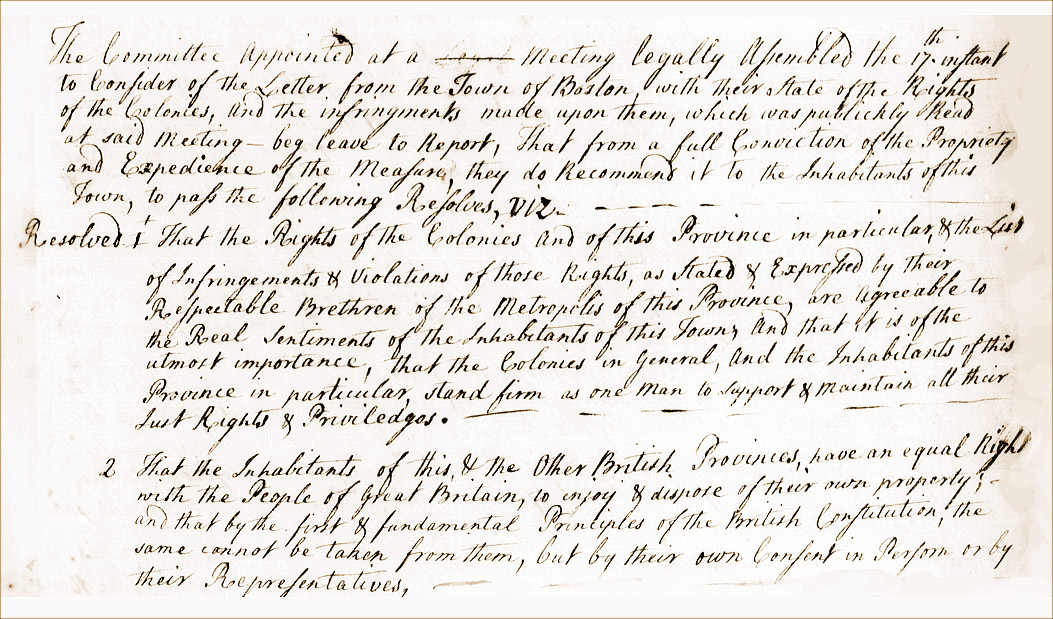 The Committee Appointed at a Legal Meeting legally Assembled the 17th instant
to Consider of the Letter from the Town of Boston, with their State of the Rights
of the Colonies, and the infringments made upon them, which was publickly Read
at said Meeting — beg leave to Report, That from a full Conviction of the Propriety
and Expedience of the Measure, they do Recommend it to the Inhabitants of this
Town, to pass the following Resolves, VIZ.
Resolved 1st That the Rights of the Colonies and of this Province in particular, & the List
of Infringements & Violations of those Rights, as Stated & Expressed by their
Respectable Brethren of the Metropolis of this Province, are agreeable to
the Real Sentiments of the Inhabitants of this Town, And that It is of the
utmost importance, that the Colonies in General, And the Inhabitants of this
Province in particular, stand firm as one Man to Support & Maintain all their
Just Rights & Priviledges.
2 That the Inhabitants of this, & the Other British Provinces, have an equal Right
with the People of Great Britain, to injoy & dispose of their own property; -
and that by the first & fundamental Principles of the British Constitution, the
same cannot be taken from them, but by their own Consent in Person or by
their Representatives,